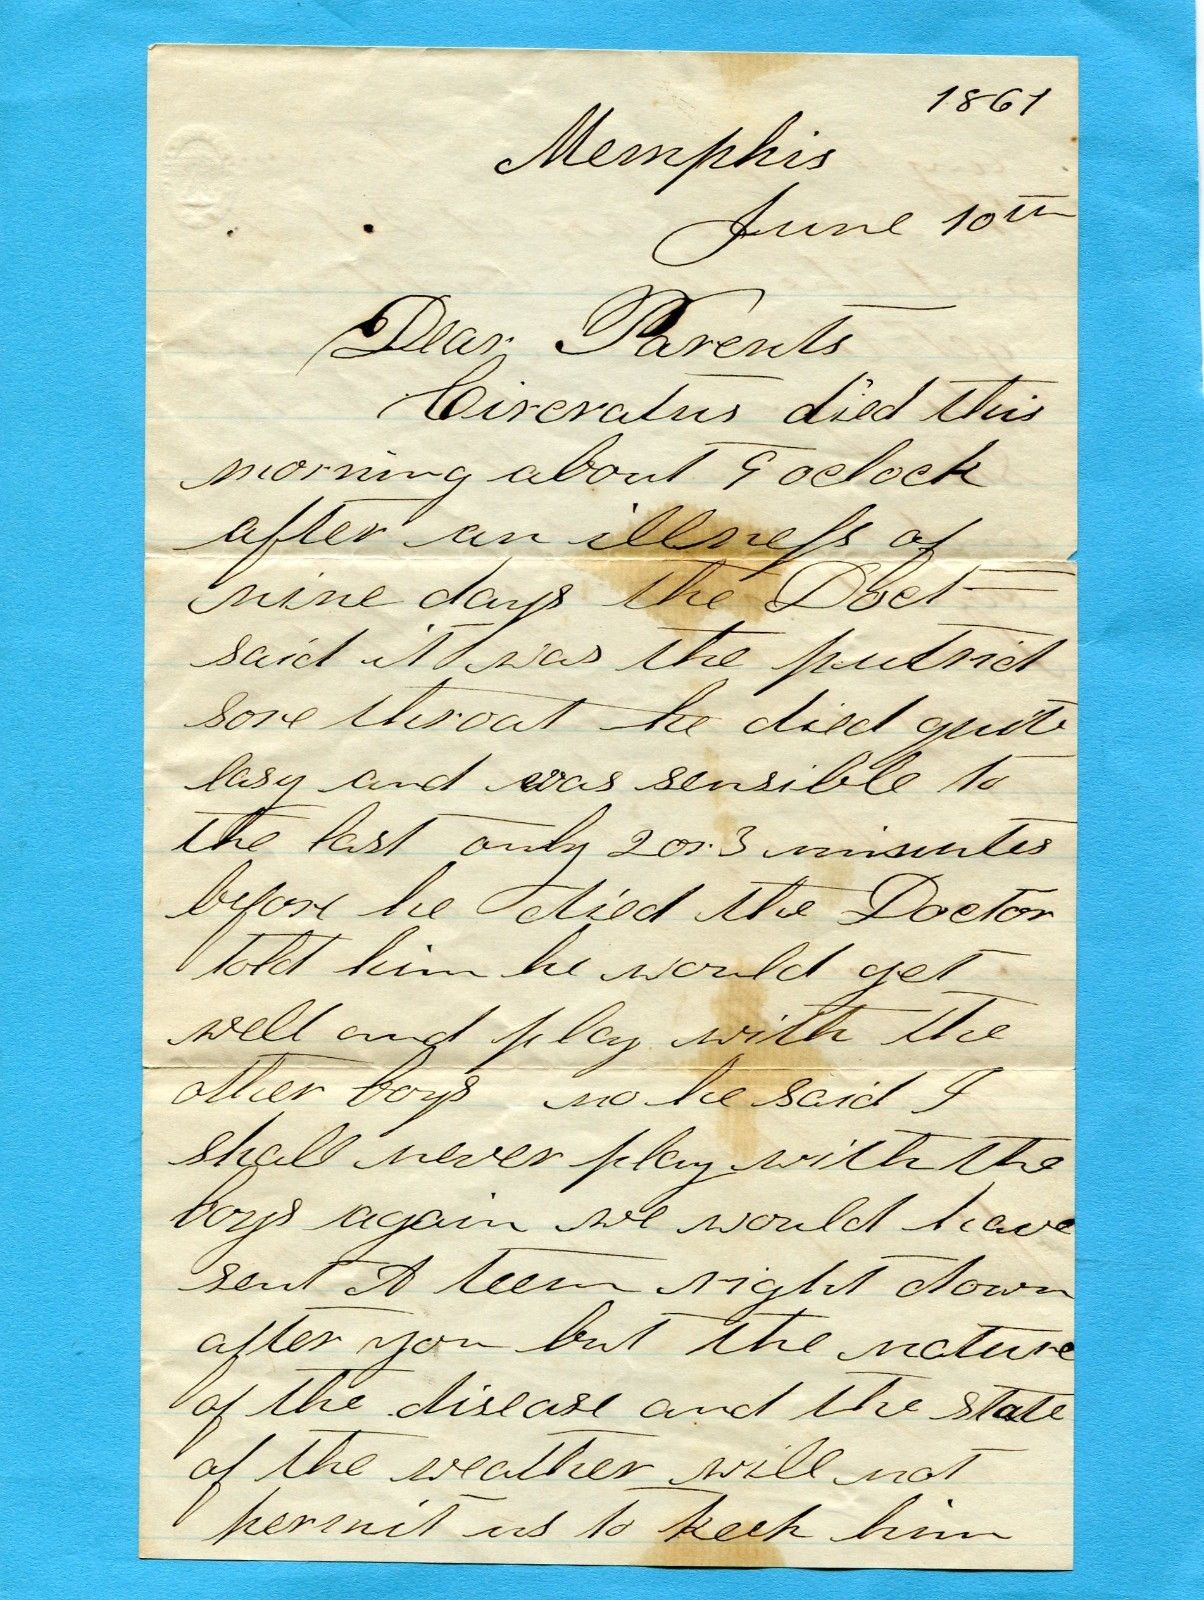 1861
Memphis
June 10th
Dear Parents
Circratus died this
morning about 9 oclock
after an illness of
nine days the Doct
said it was the putrid
sore throat he died quite
easy and was sensible to
the last only 2 or 3 minutes
before he died the Doctor
told him he would get
well and play with the
other boys no he said I
shall never play with the
boys again we would have
sent A teem right down
after you but the nature
of the disease and the state
of the weather will not
permit us to keek him